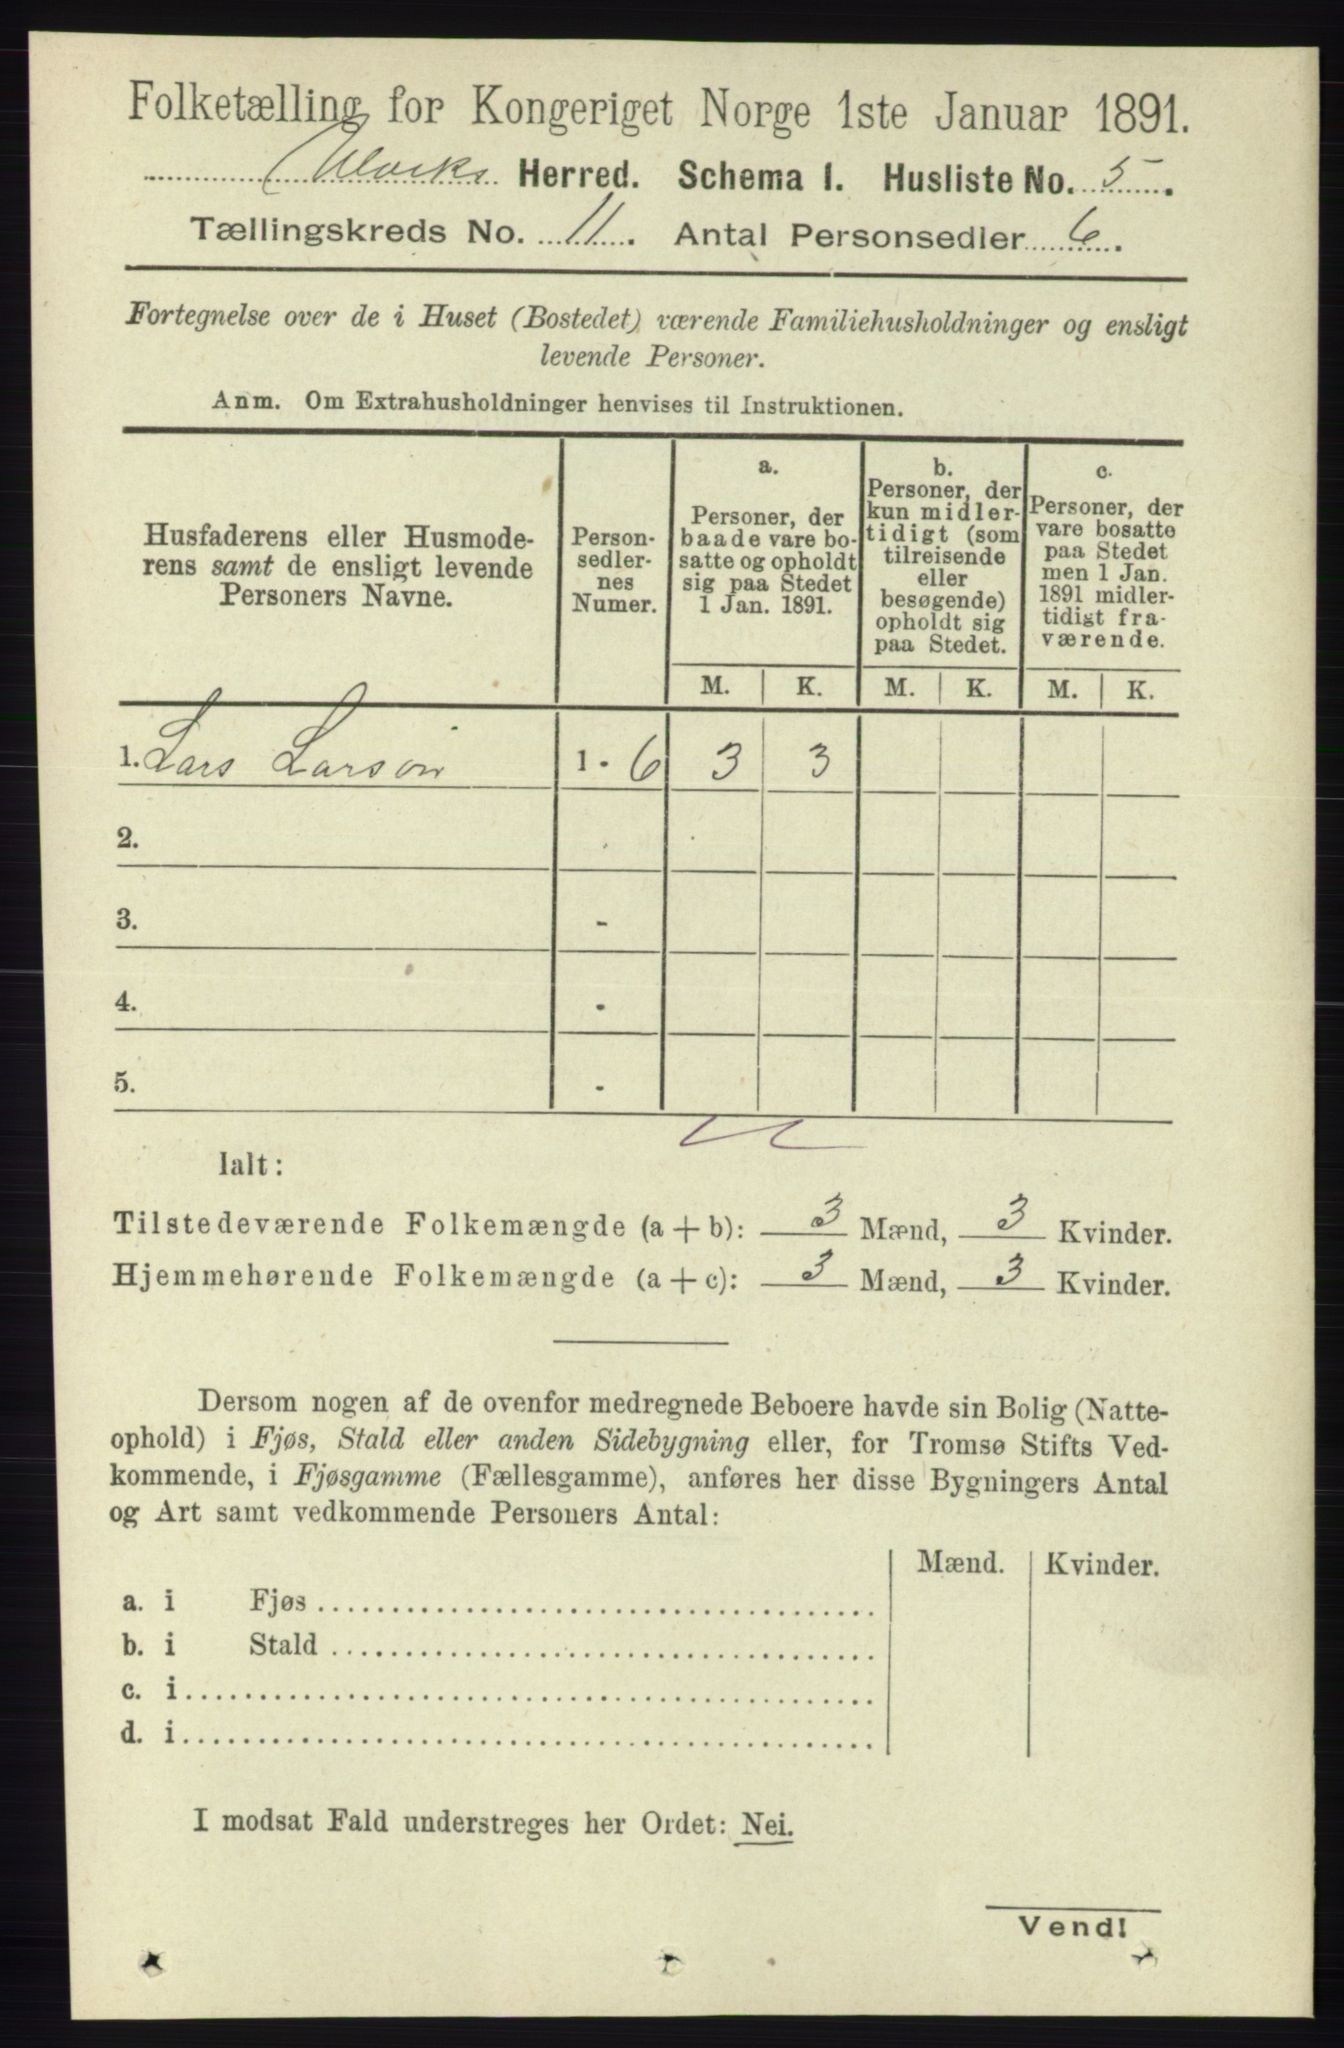 Folketælling for Kongeriget Norge 1ste Januar 1891.
Ulviks Herred. Schema I. Husliste No. 5.
Tællingskreds No. 11. Antal Personsedler 6.
Fortegnelse over de i Huset (Bostedet) værende Familiehusholdninger og ensligt
levende Personer.
Anm. Om Extrahusholdninger henvises til Instruktionen.
Husfaderens eller Husmode-
rens samt de ensligt levende
Personers Navne.
Person-
sedler-
nes
Numer.
a.
Personer, der
baade vare bo-
satte og opholdt
sig paa Stedet
1 Jan. 1891.
b.
Personer, der
kun midler-
tidigt (som
tilreisende
eller
besøgende)
opholdt sig
paa Stedet.
c.
Personer, der
vare bosatte
paa Stedet
men 1 Jan.
1891 midler-
tidigt fra-
værende.
M. K. M. K. M. K.
1. Lars Larson 1 - 6 3 3
2. -
3. -
4. -
5. -
Ialt:
Tilstedeværende Folkemængde (a + b): 3 Mænd, 3 Kvinder.
Hjemmehørende Folkemængde (a + c): 3 Mænd, 3 Kvinder.
Dersom nogen af de ovenfor medregnede Beboere havde sin Bolig (Natte-
ophold) i Fjøs, Stald eller anden Sidebygning eller, for Tromsø Stifts Ved-
kommende, i Fjøsgamme (Fællesgamme), anføres her disse Bygningers Antal
og Art samt vedkommende Personers Antal:
Mænd. Kvinder.
a. i Fjøs
b. i Stald
c. i
d. i
I modsat Fald understreges her Ordet: Nei.
Vend!